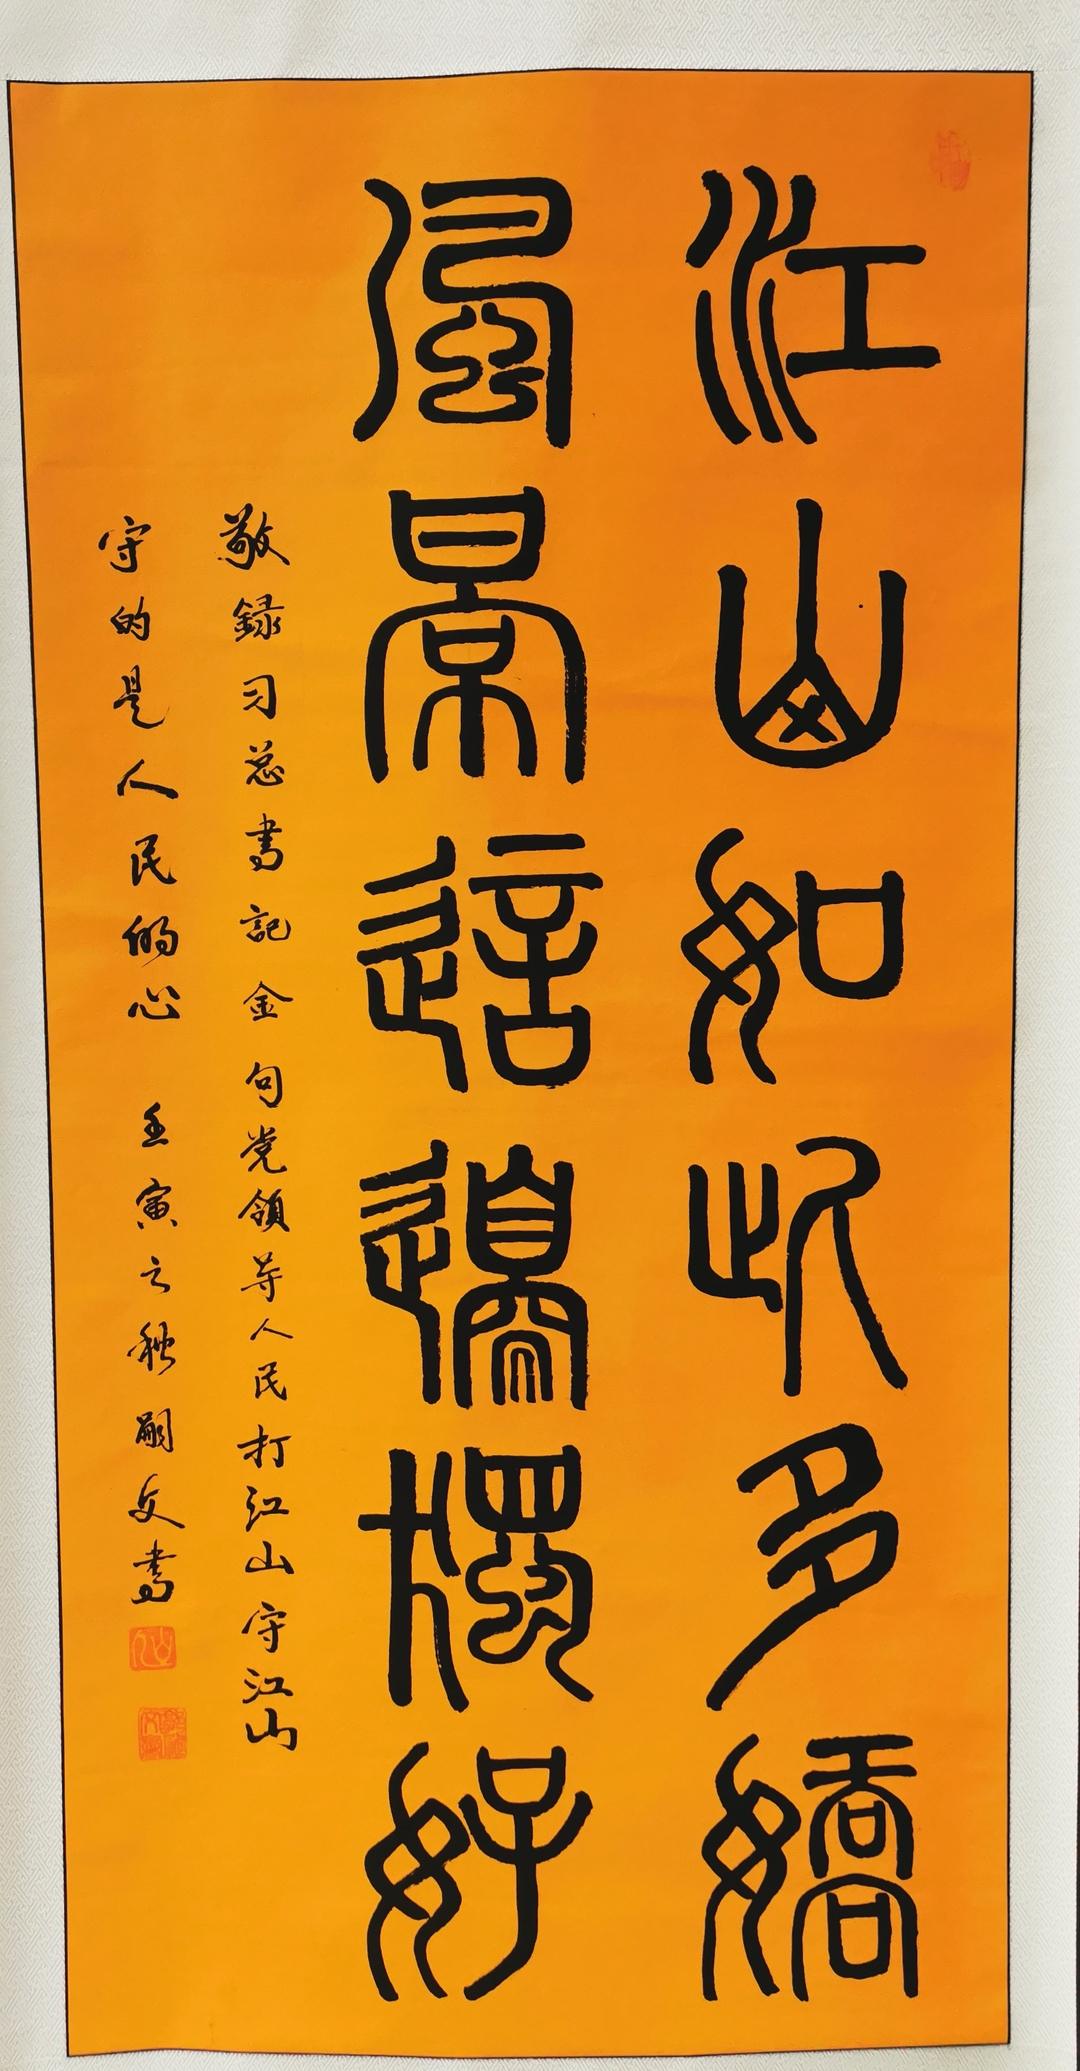 江山如此多嬌
風景這邊獨好
敬録习总書記金句党領导人民打江山守江山
守的是人民的心 壬寅之秋嗣文書